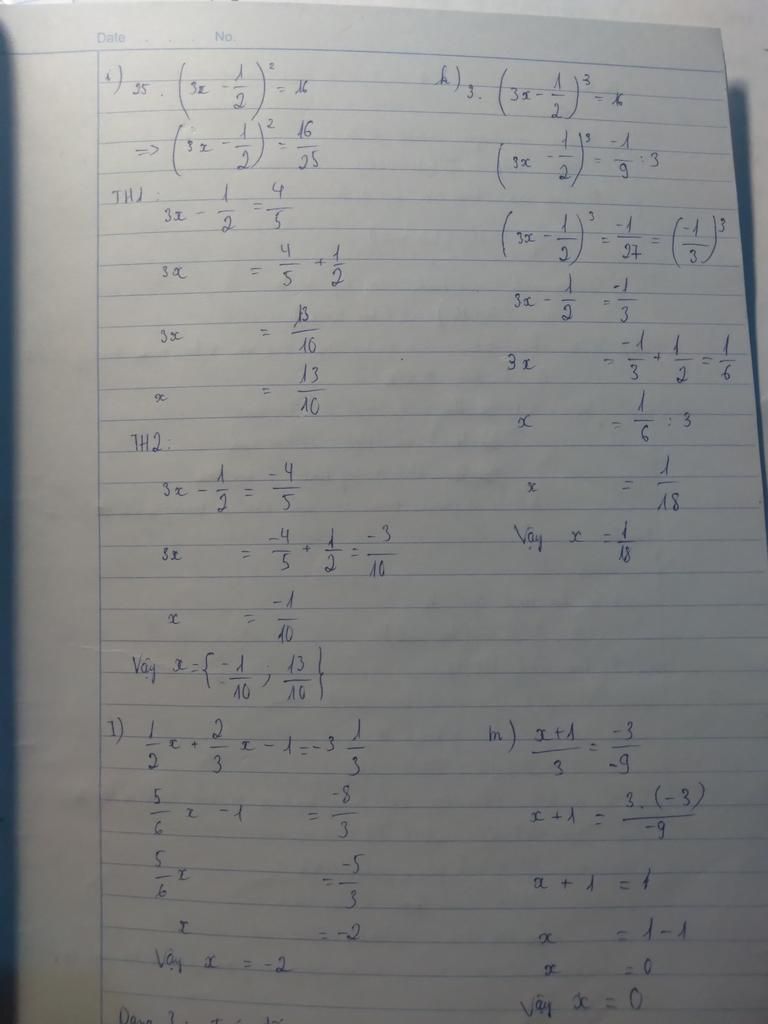 Date . . . . No.
i) 25 . (3x - 1/2)² = 16
=> (3x - 1/2)² = 16/25
TH1:
3x - 1/2 = 4/5
3x = 4/5 + 1/2
3x = 13/10
x = 13/10
TH2:
3x - 1/2 = -4/5
3x = -4/5 + 1/2 = -3/10
x = -1/10
Vậy x = {-1/10 ; 13/10}
k) 3. (3x - 1/2)³ = 16
(3x - 1/2)³ = -1/9 : 3
(3x - 1/2)³ = -1/27 = (-1/3)³
3x - 1/2 = -1/3
3x = -1/3 + 1/2 = 1/6
x = 1/6 : 3
x = 1/18
Vậy x = 1/18
I) 1/2 x + 2/3 x - 1 = -3 1/3
5/6 x - 1 = -8/3
5/6 x = -5/3
x = -2
Vậy x = -2
m) x+1/3 = -3/-9
x + 1 = 3.(-3)/-9
x + 1 = 1
x = 1 - 1
x = 0
Vậy x = 0
Dạng 3: